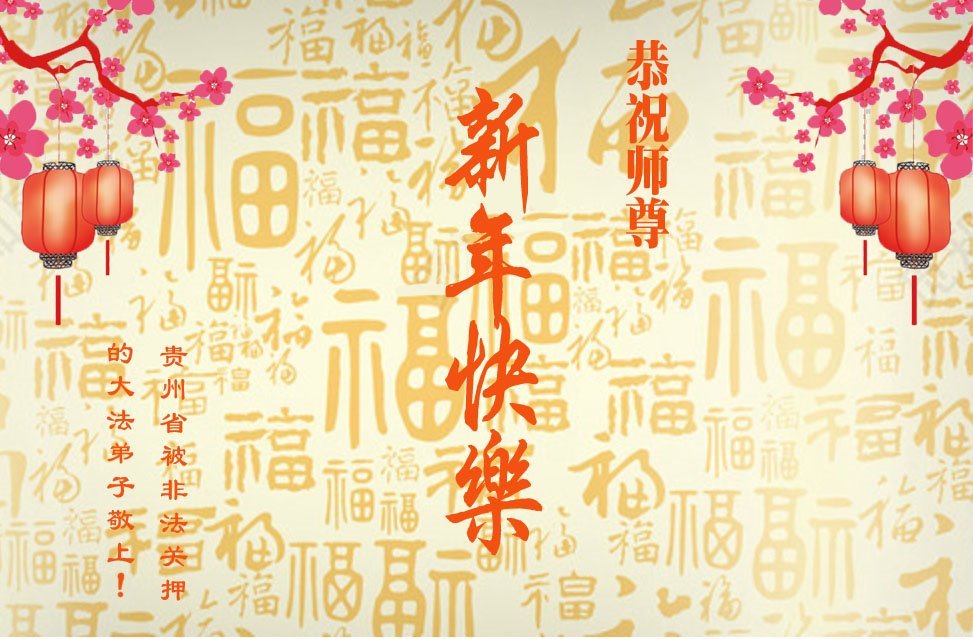 恭祝师尊
新年快樂
贵州省被非法关押
的大法弟子敬上！